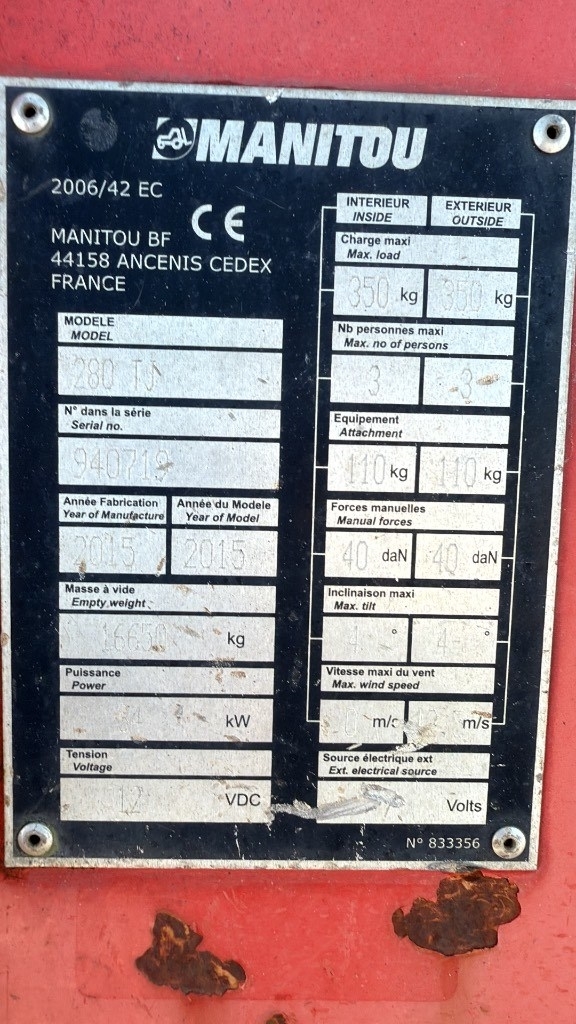 MANITOU
2006/42 EC
CE
MANITOU BF
44158 ANCENIS CEDEX
FRANCE
MODELE
MODEL
280 TJ
N° dans la série
Serial no.
940719
Année Fabrication
Year of Manufacture
2015
Année du Modele
Year of Model
2015
Masse à vide
Empty weight
16650 kg
Puissance
Power
kW
Tension
Voltage
12 VDC
INTERIEUR
INSIDE
EXTERIEUR
OUTSIDE
Charge maxi
Max. load
350 kg 350 kg
Nb personnes maxi
Max. no of persons
3 3
Equipement
Attachment
110 kg 110 kg
Forces manuelles
Manual forces
40 daN 40 daN
Inclinaison maxi
Max. tilt
4 ° 4 °
Vitesse maxi du vent
Max. wind speed
0 m/s m/s
Source électrique ext
Ext. electrical source
Volts
N° 833356